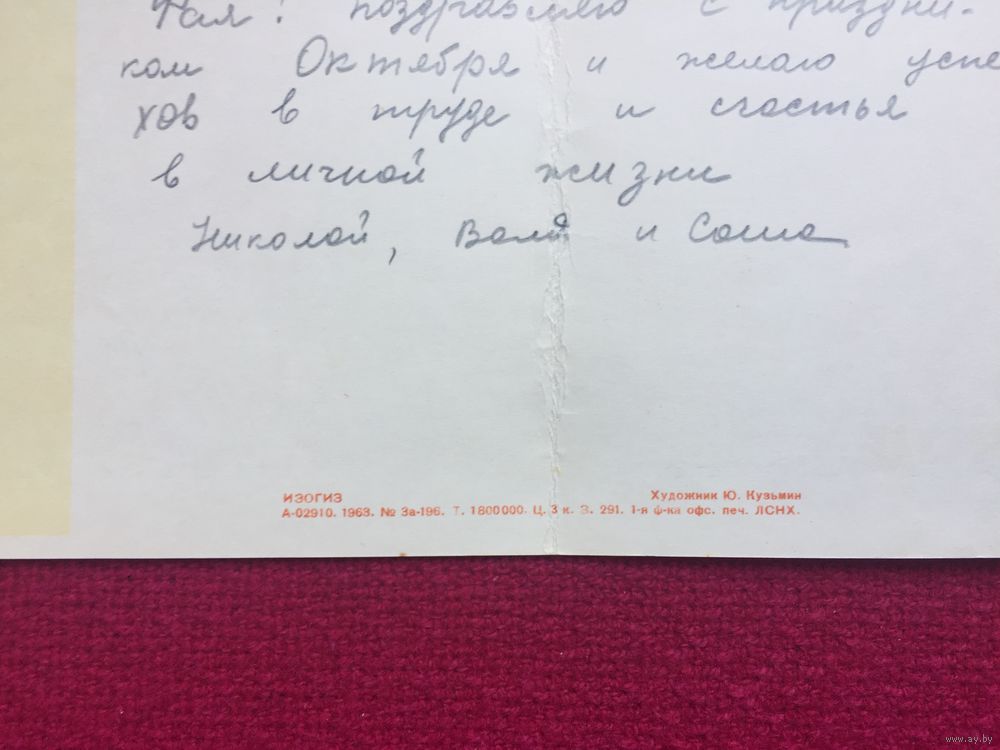 Тая! поздравляю с праздни-
ком Октября и желаю успе
хов в труде и счастья
в личной жизни
Николай, Валя и Саша
ИЗОГИЗ
Художник Ю. Кузьмин
А-02910. 1963. № 3а-196. Т. 1800000. Ц. 3 к. З. 291. 1-я ф-ка офс. печ. ЛСНХ.
www.ay.by